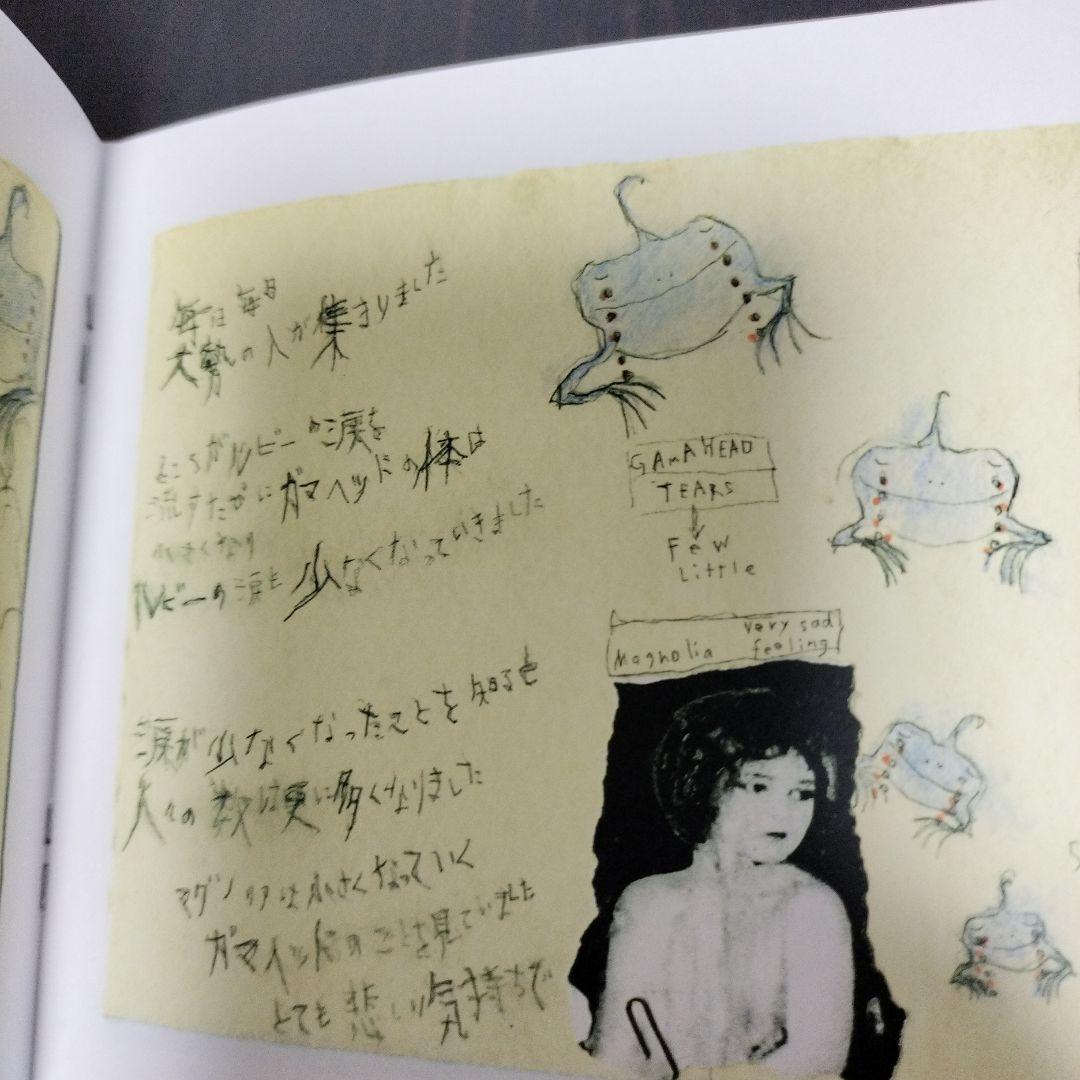 毎日毎日
大勢の人が集まりました
ところがルビーの涙を
流すたびにガマヘッドの体は
小さくなり
ルビーの涙も少なくなっていきました
涙が少なくなったことを知ると
人々の数は更に多くなりました
マグノリアは小さくなっていく
ガマヘッドのことを見ていました
とても悲しい気持ちで
GAMAHEAD
TEARS
Few
Little
very sad
Magnolia feeling